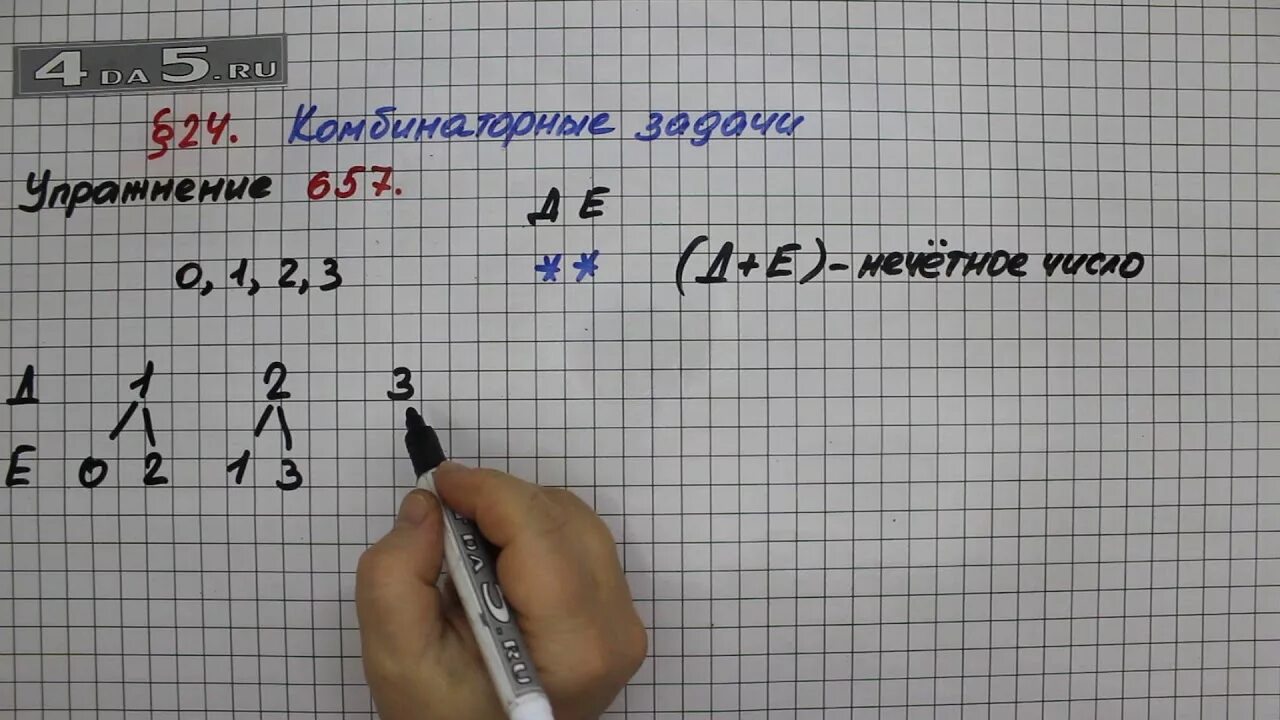 4DA5.RU
§24. Комбинаторные задачи
Упражнение 657.
Д Е
0, 1, 2, 3
** (Д+Е) - нечётное число
Д 1 2 3
Е 0 2 1 3
DA5.RU